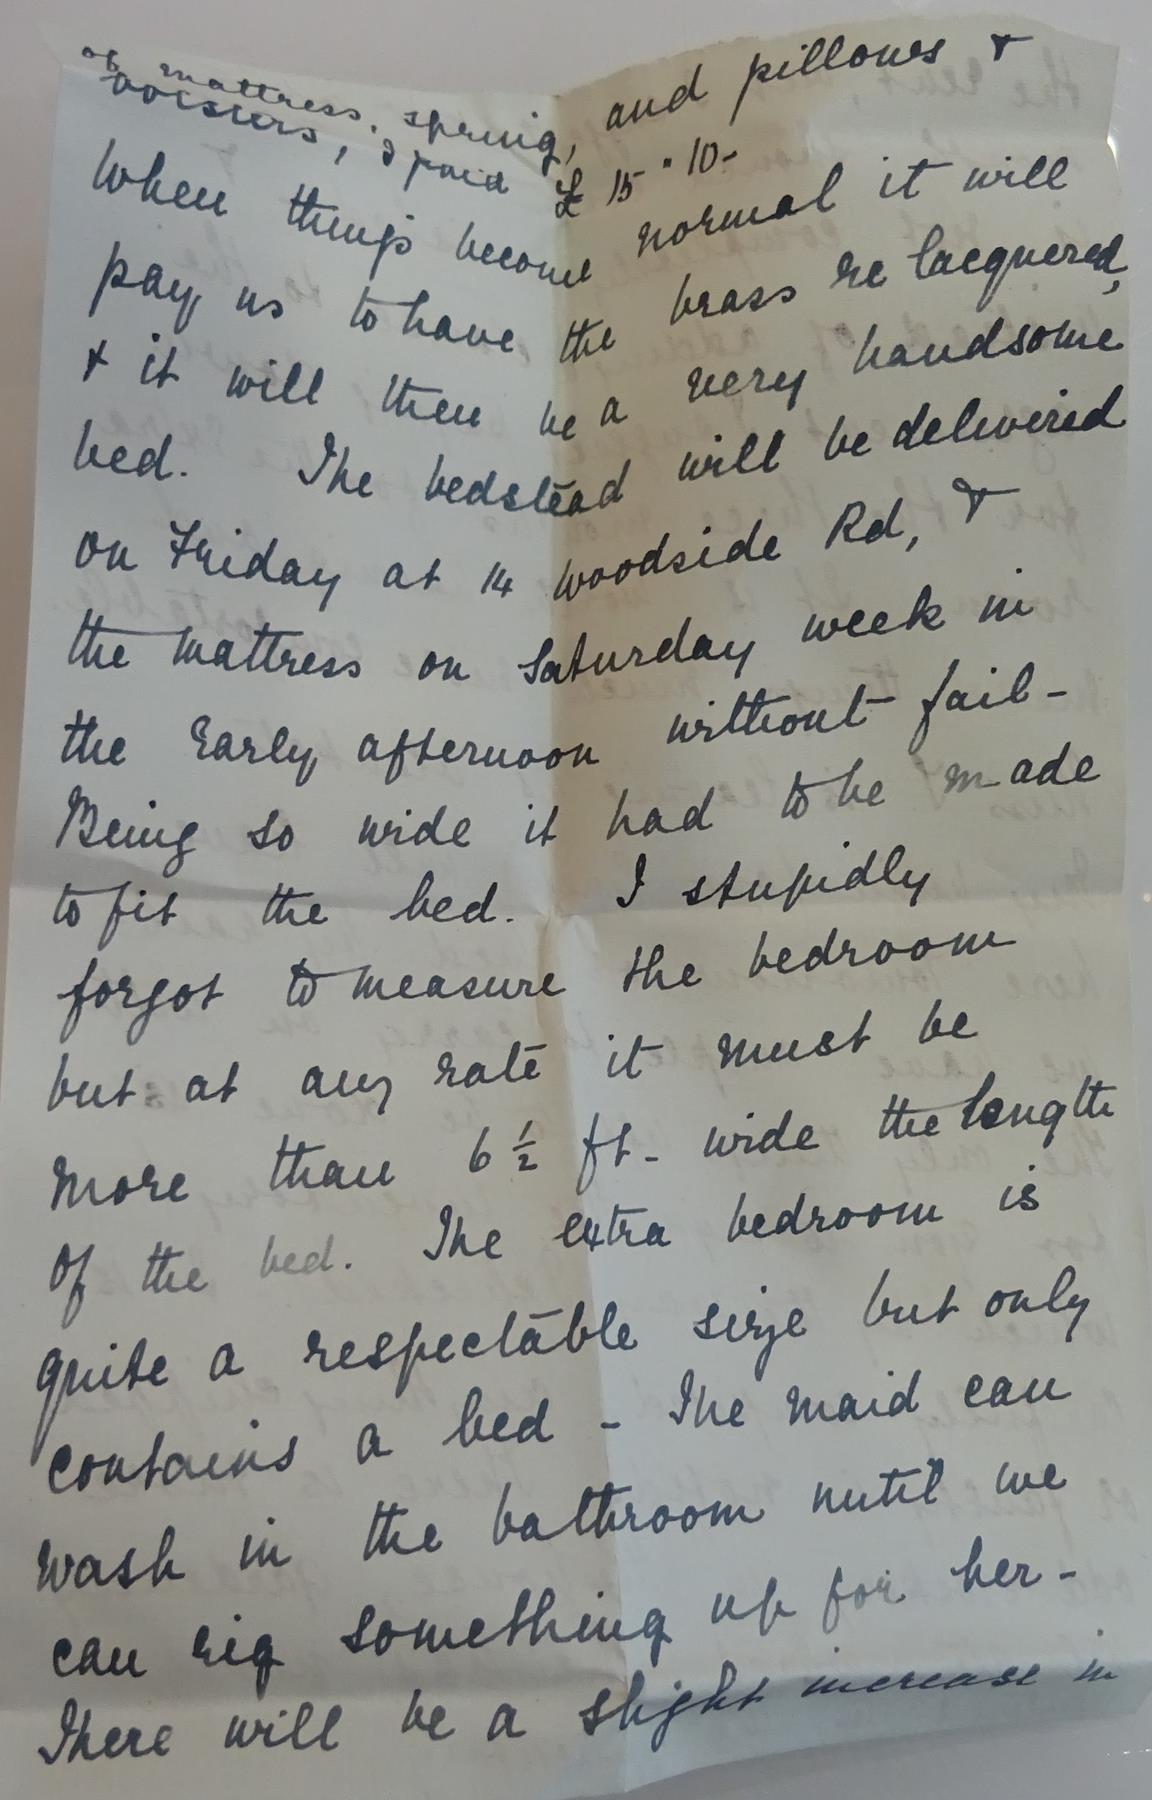 of mattress, spring, and pillows &
bolsters, I paid £15"10-
When things become normal it will
pay us to have the brass re lacquered,
& it will then be a very handsome
bed. The bedstead will be delivered
on Friday at 14 Woodside Rd, &
the mattress on Saturday week in
the early afternoon without fail-
Being so wide it had to be made
to fit the bed. I stupidly
forgot to measure the bedroom
but at any rate it must be
more than 6½ ft. wide the length
of the bed. The extra bedroom is
quite a respectable size but only
contains a bed - The maid can
wash in the bathroom until we
can rig something up for her-
There will be a slight increase in